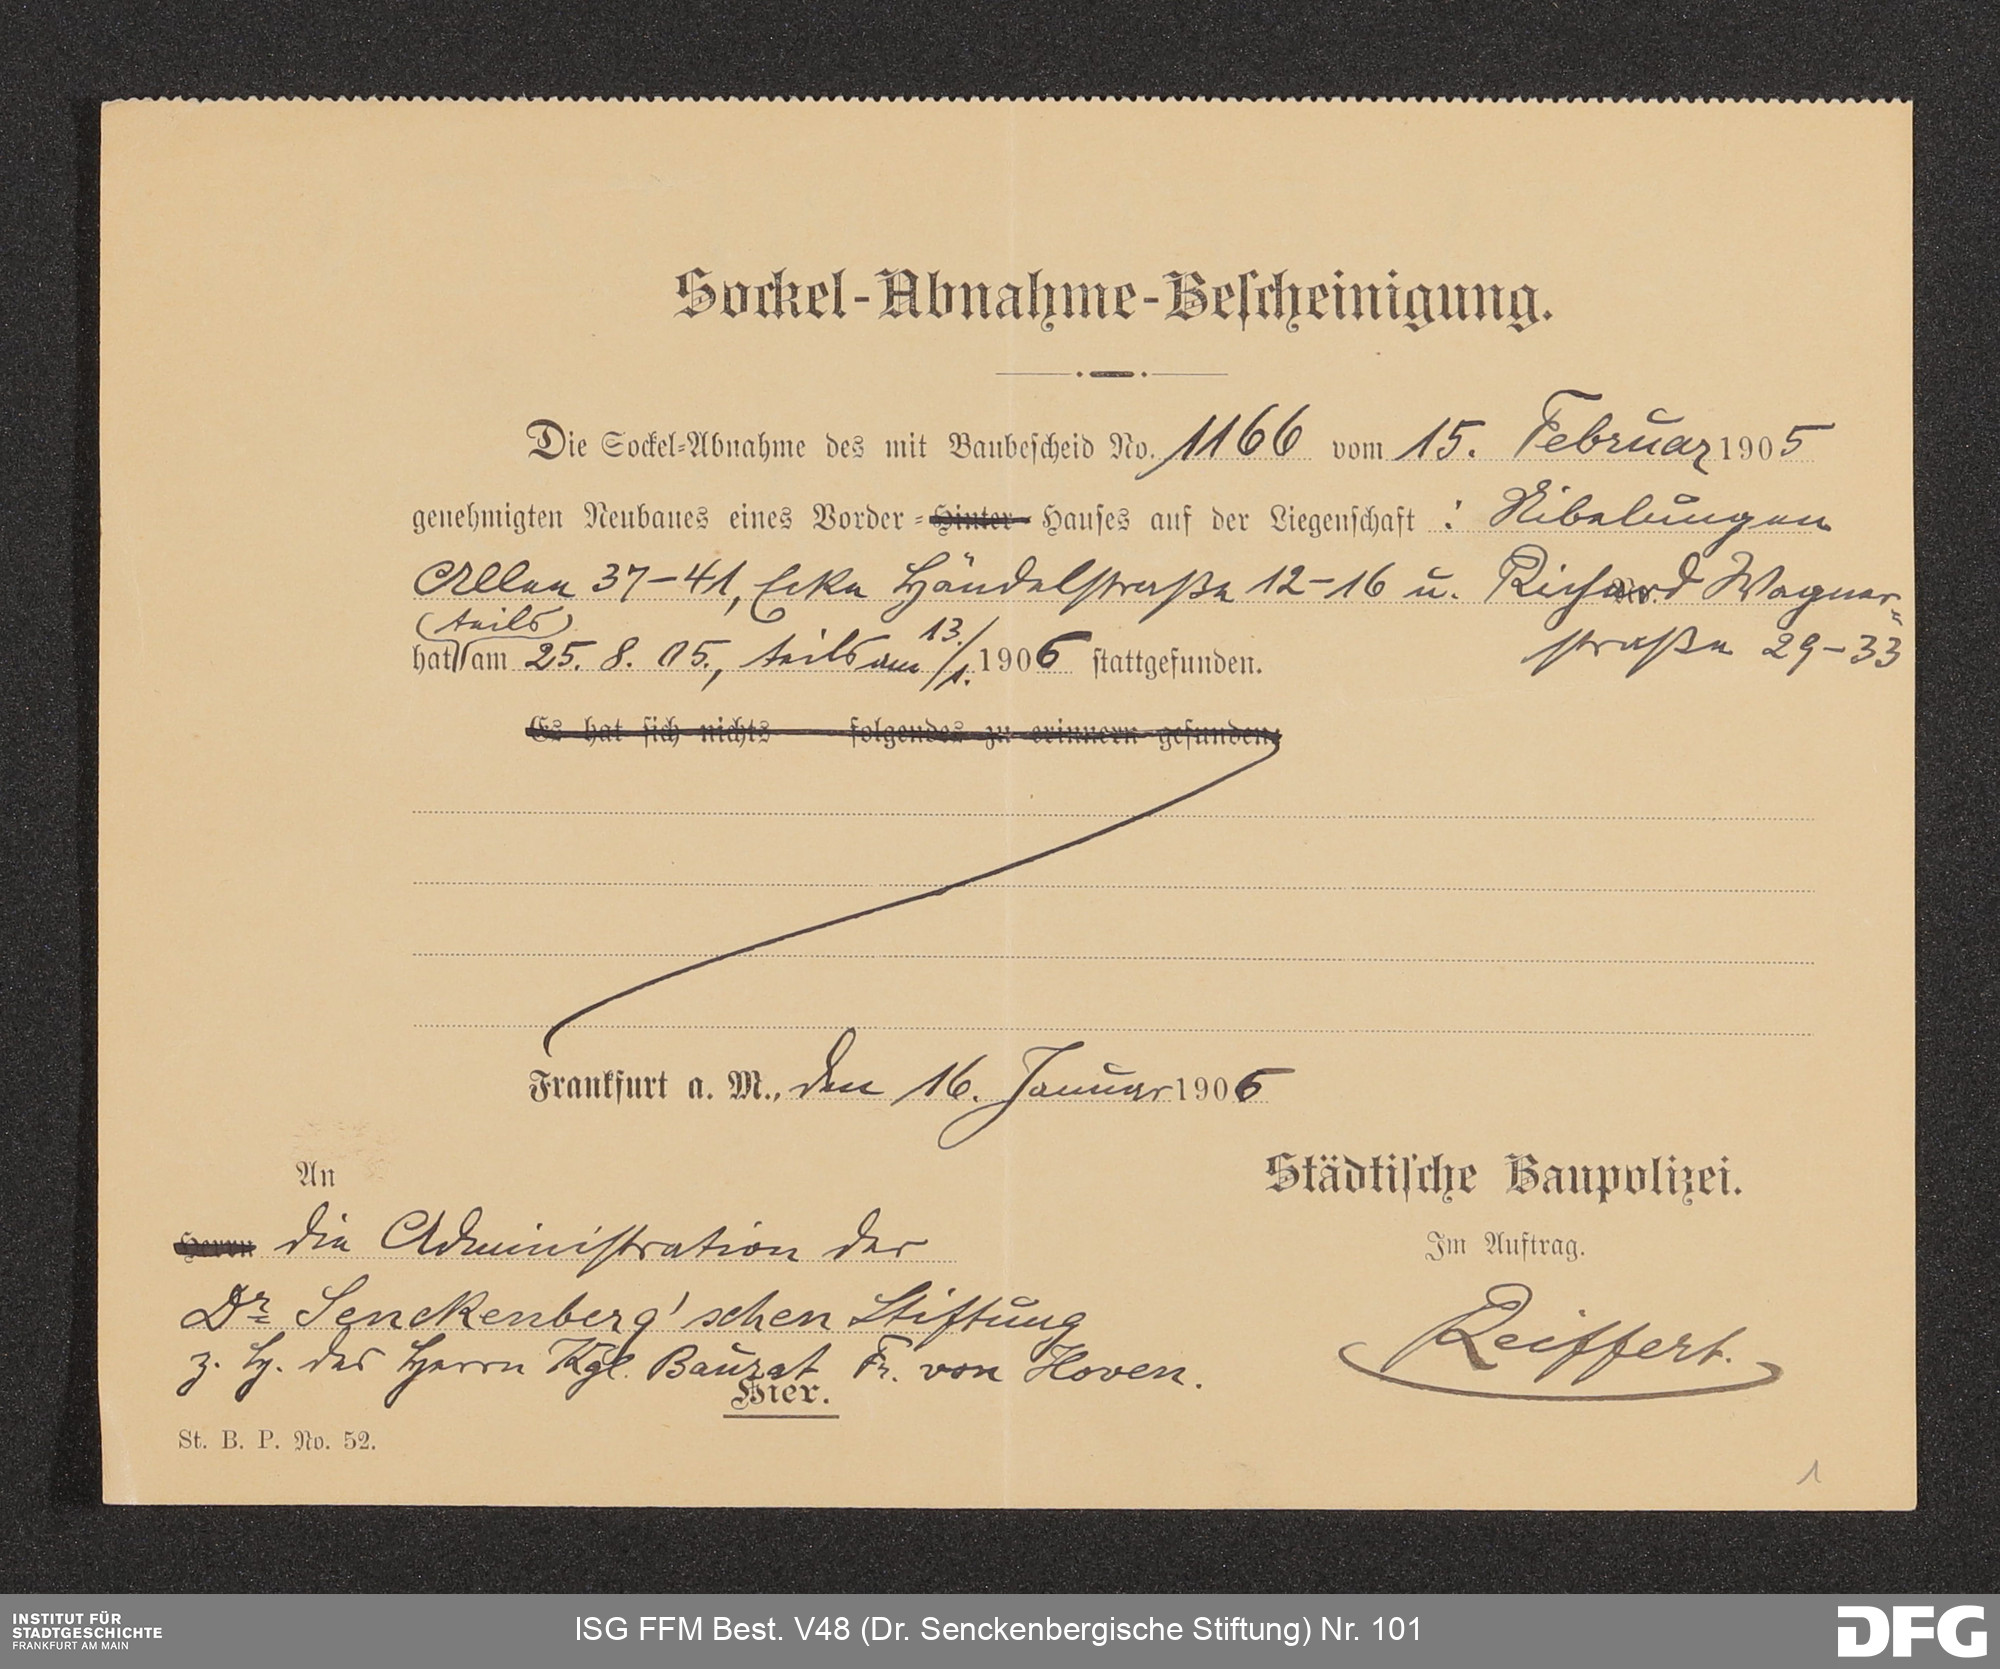 Sockel-Abnahme-Bescheinigung.
Die Sockel-Abnahme des mit Baubescheid No. 1166 vom 15. Februar 1905
genehmigten Neubaues eines Vorder- Hinter- Hauses auf der Liegenschaft : Nibelungen
Allee 37-41, Ecke Händelstraße 12-16 u. Richard Wagner-
straße 29-33
(teils)
hat am 25. 8. 05., teils am 13./1. 1906 stattgefunden.
Es hat sich nichts folgendes zu erinnern gefunden:
Frankfurt a. M., den 16. Januar 1906
Städtische Baupolizei.
Im Auftrag.
Reiffert.
An
Herrn die Administration der
Dr. Senckenberg'schen Stiftung
z. H. des Herrn Kgl. Baurat Fr. von Hoven.
Hier.
St. B. P. No. 52.
1
INSTITUT FÜR
STADTGESCHICHTE
FRANKFURT AM MAIN
ISG FFM Best. V48 (Dr. Senckenbergische Stiftung) Nr. 101
DFG